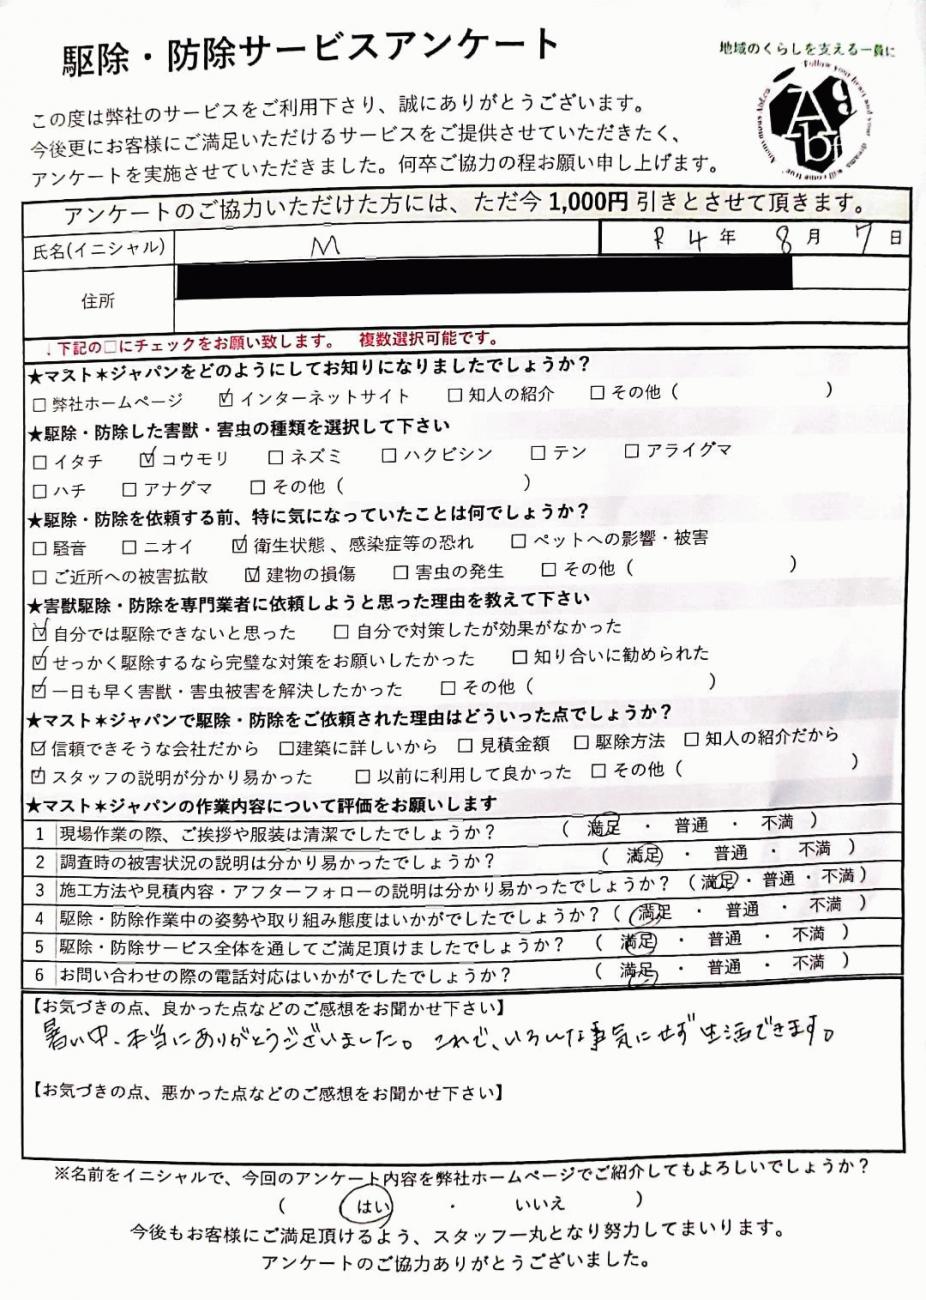 駆除・防除サービスアンケート
地域のくらしを支える一員に
この度は弊社のサービスをご利用下さり、誠にありがとうございます。
今後更にお客様にご満足いただけるサービスをご提供させていただきたく、
アンケートを実施させていただきました。何卒ご協力の程お願い申し上げます。
アンケートのご協力いただけた方には、ただ今 1,000円 引きとさせて頂きます。
氏名(イニシャル) M R 4 年 8 月 7 日
住所
↓下記の□にチェックをお願い致します。 複数選択可能です。
★マスト＊ジャパンをどのようにしてお知りになりましたでしょうか？
□ 弊社ホームページ ☑ インターネットサイト □ 知人の紹介 □ その他 ( )
★駆除・防除した害獣・害虫の種類を選択して下さい
□ イタチ ☑ コウモリ □ ネズミ □ ハクビシン □ テン □ アライグマ
□ ハチ □ アナグマ □ その他 ( )
★駆除・防除を依頼する前、特に気になっていたことは何でしょうか？
□ 騒音 □ ニオイ ☑ 衛生状態 、感染症等の恐れ □ ペットへの影響・被害
□ ご近所への被害拡散 ☑ 建物の損傷 □ 害虫の発生 □ その他 ( )
★害獣駆除・防除を専門業者に依頼しようと思った理由を教えて下さい
☑ 自分では駆除できないと思った □ 自分で対策したが効果がなかった
☑ せっかく駆除するなら完璧な対策をお願いしたかった □ 知り合いに勧められた
☑ 一日も早く害獣・害虫被害を解決したかった □ その他 ( )
★マスト＊ジャパンで駆除・防除をご依頼された理由はどういった点でしょうか？
☑ 信頼できそうな会社だから □建築に詳しいから □ 見積金額 □ 駆除方法 □ 知人の紹介だから
☑ スタッフの説明が分かり易かった □ 以前に利用して良かった □ その他 ( )
★マスト＊ジャパンの作業内容について評価をお願いします
1 現場作業の際、ご挨拶や服装は清潔でしたでしょうか？ ( 満足 ・ 普通 ・ 不満 )
2 調査時の被害状況の説明は分かり易かったでしょうか？ ( 満足 ・ 普通 ・ 不満 )
3 施工方法や見積内容・アフターフォローの説明は分かり易かったでしょうか？ ( 満足 ・ 普通 ・ 不満 )
4 駆除・防除作業中の姿勢や取り組み態度はいかがでしたでしょうか？ ( 満足 ・ 普通 ・ 不満 )
5 駆除・防除サービス全体を通してご満足頂けましたでしょうか？ ( 満足 ・ 普通 ・ 不満 )
6 お問い合わせの際の電話対応はいかがでしたでしょうか？ ( 満足 ・ 普通 ・ 不満 )
【お気づきの点、良かった点などのご感想をお聞かせ下さい】
暑い中、本当にありがとうございました。これで、いろんな事気にせず生活できます。
【お気づきの点、悪かった点などのご感想をお聞かせ下さい】
※名前をイニシャルで、今回のアンケート内容を弊社ホームページでご紹介してもよろしいでしょうか？
( はい ・ いいえ )
今後もお客様にご満足頂けるよう、スタッフ一丸となり努力してまいります。
アンケートのご協力ありがとうございました。